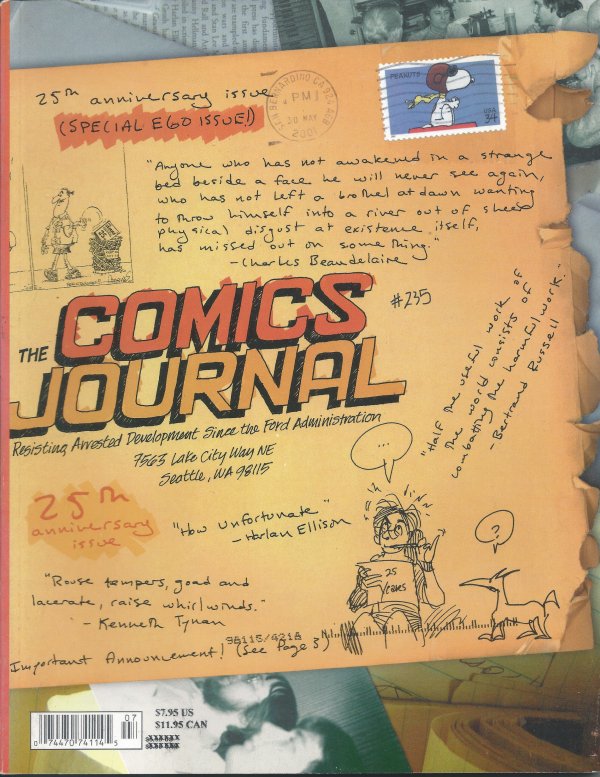 25th anniversary issue
(SPECIAL EGO ISSUE!)
SAN BERNARDINO CA 924
PM
30 MAY
2001
PEANUTS
USA
34
"Anyone who has not awakened in a strange
bed beside a face he will never see again,
who has not left a brothel at dawn wanting
to throw himself into a river out of sheer
physical disgust at existence itself,
has missed out on something."
- Charles Beaudelaire
THE COMICS
JOURNAL
#235
Resisting Arrested Development Since the Ford Administration
7563 Lake City Way NE
Seattle, WA 98115
"Half the useful work of
the world consists of
combatting the harmful work."
- Bertrand Russell
25th
anniversary
issue
"How Unfortunate"
- Harlan Ellison
...
?
25
YEARS
"Rouse tempers, goad and
lacerate, raise whirlwinds."
- Kenneth Tynan
98115/4218
Important Announcement! (See Page 3)
07
0 74470 74114 5
$7.95 US
$11.95 CAN
XXXXXX
XXXXXX